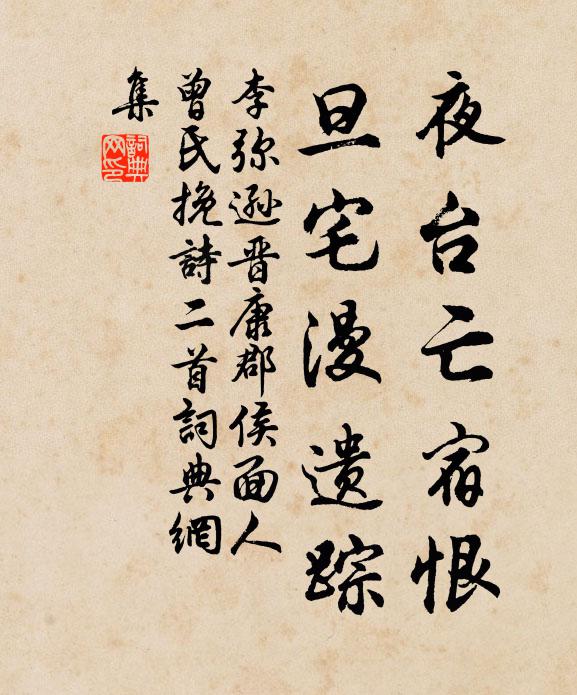 夜台亡宿恨
旦宅漫遗踪
李弥逊晋康郡侯面人
曾氏挽詩二首詞典網
集
詞典网印